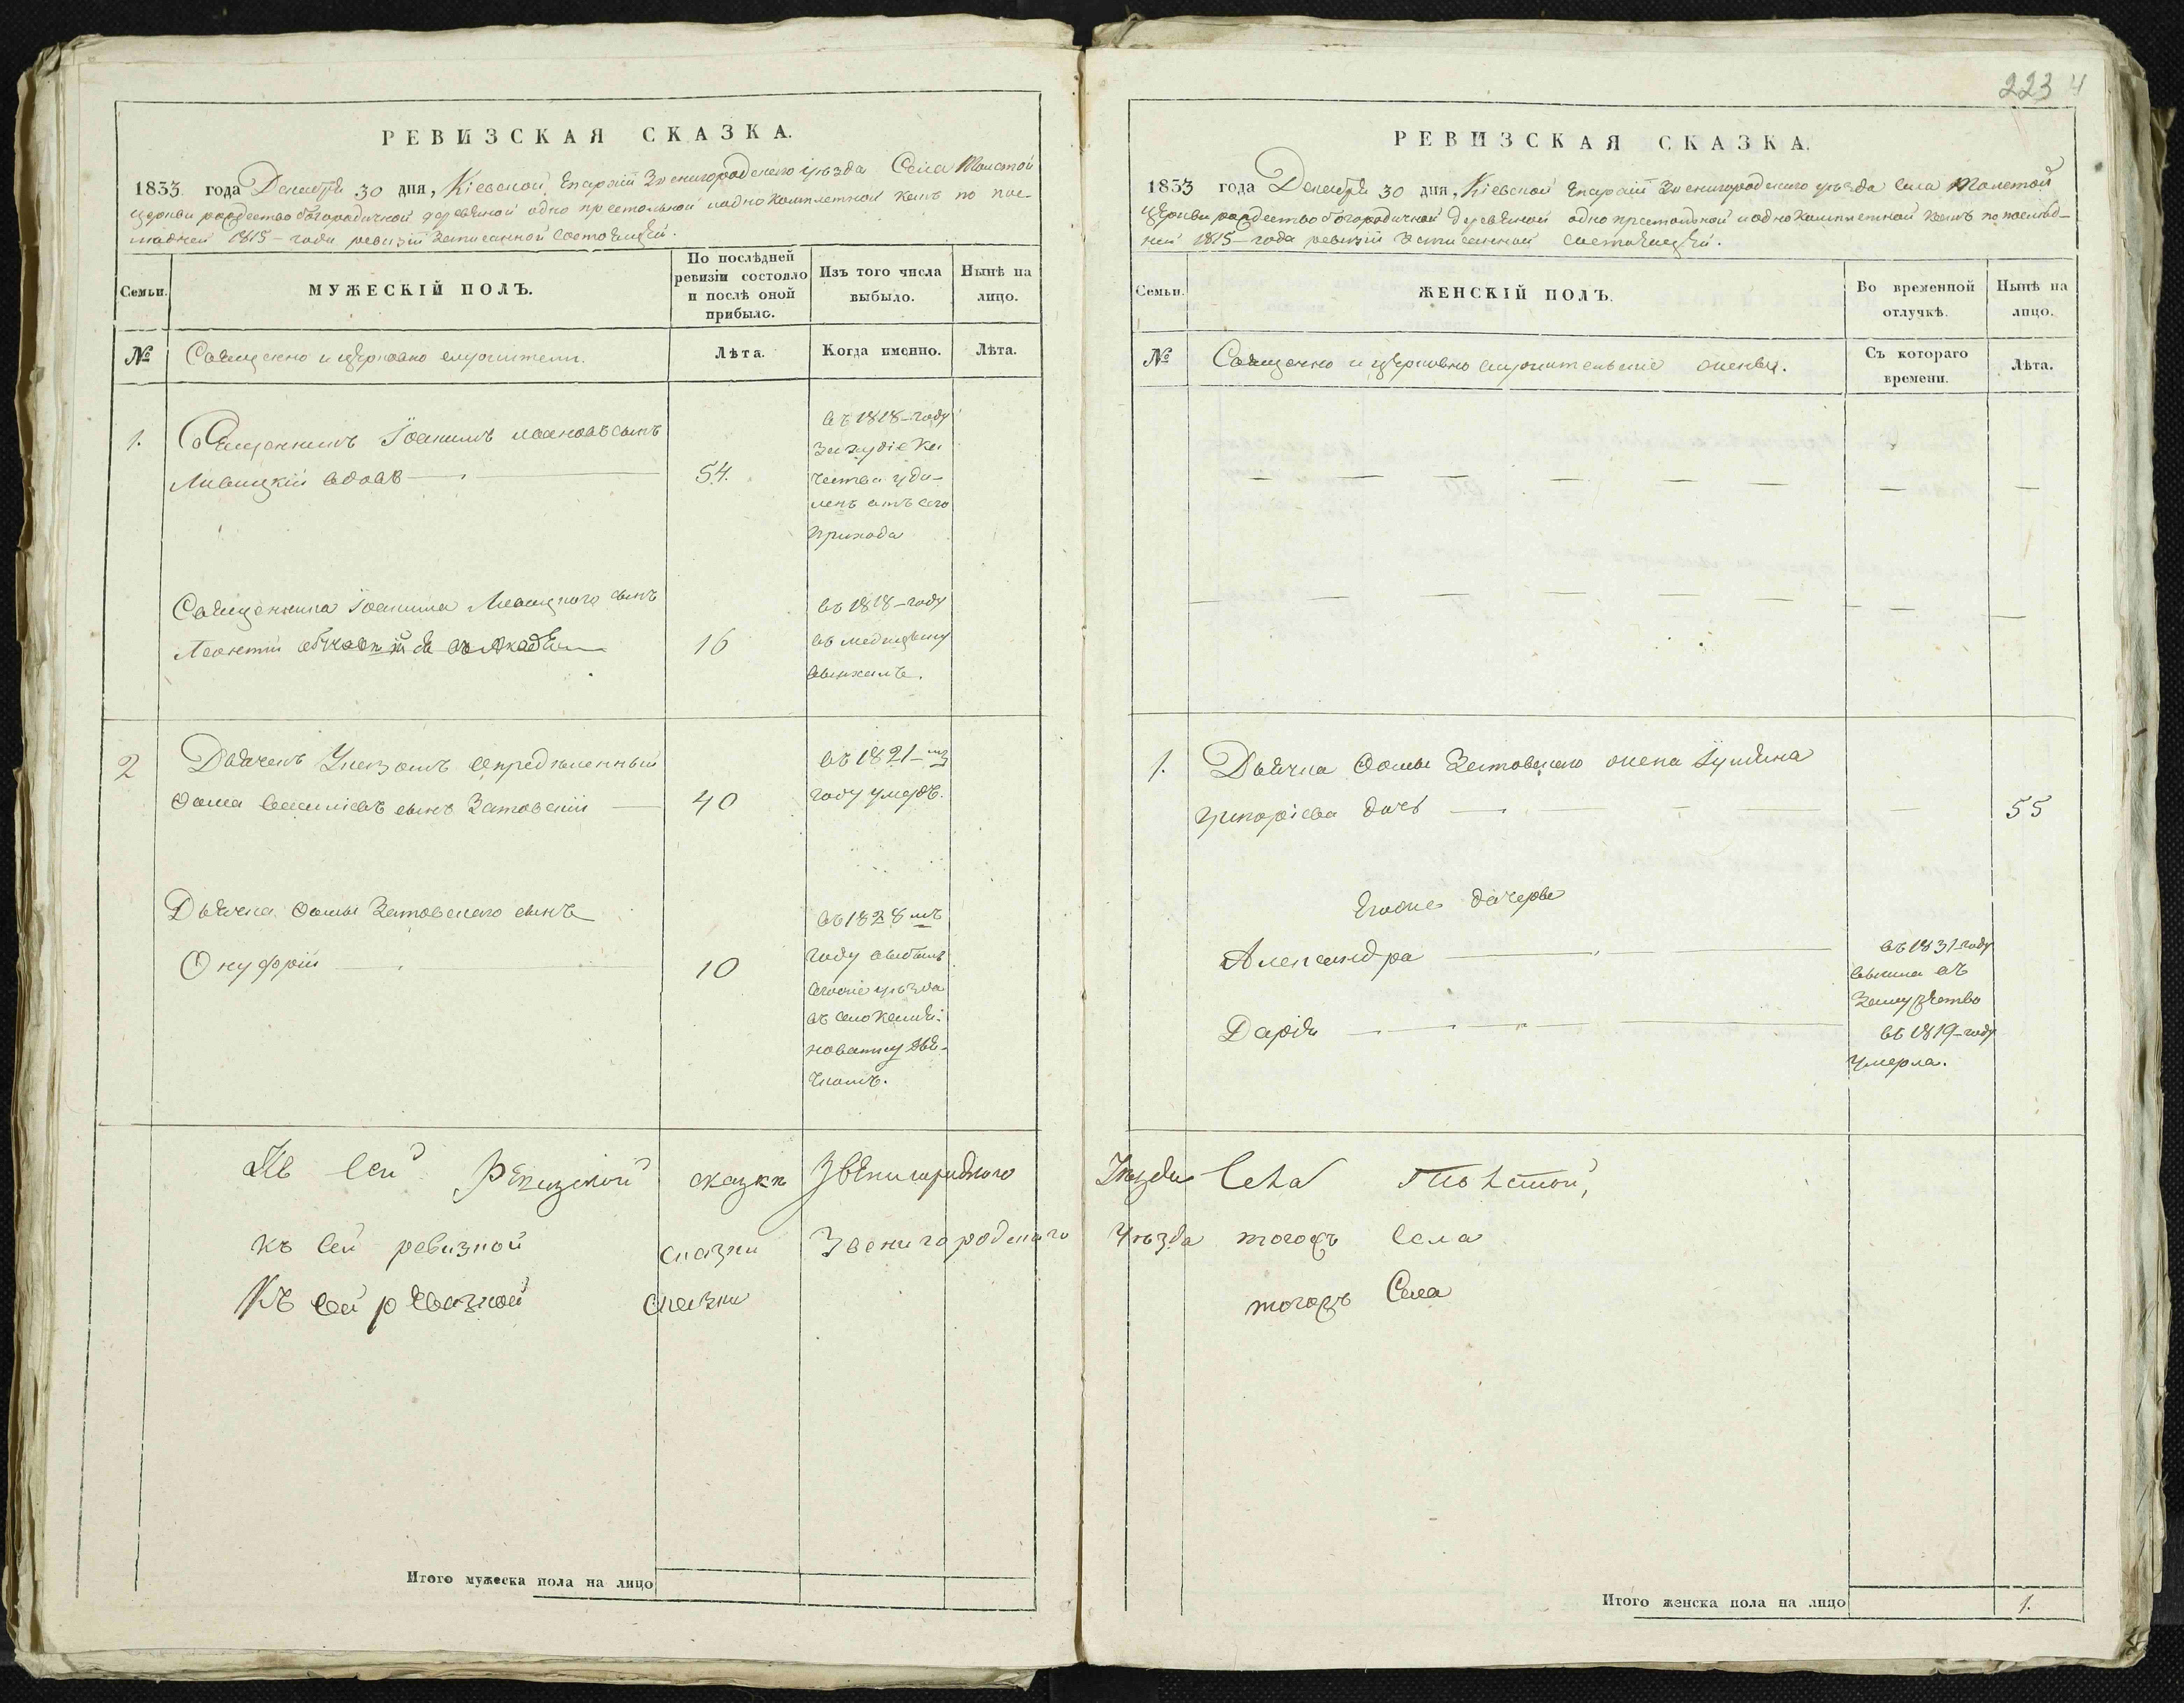 РЕВИЗСКАЯ СКАЗКА.
1833 года Декабря 30 дня, Кіевской Епархіи Звенигородского уѣзда Села Толстой
церкви рождество богородичной деревяной одно престольной и однокомплетной какъ по пос-
лѣдней 1815- года ревизіи записанной состоящей.
Семьи.
МУЖЕСКІЙ ПОЛЪ.
По послѣдней
ревизіи состояло
и послѣ оной
прибыло.
Изъ того числа
выбыло.
Нынѣ на
лицо.
№
Священно и церковно служители.
Лѣта.
Когда именно.
Лѣта.
1.
Священникъ Іоакимъ Ивановъ сынъ
Левицкій вдовъ
54.
въ 1818-году
уда-
ленъ отъ сего
прихода
Священника Іоакима Левицкого сынъ
Леонтій
16
въ 1818-году
въ медицину
выехалъ.
2
Дьячекъ Указомъ опредѣленный
Фома Василіевъ сынъ Затовскій
40
въ 1821-мъ
году умеръ.
Дьячка Фомы Затовского сынъ
Онуфрій
10
въ 1828 мъ
году выбылъ
сегоже уѣзда
въ село
новатку дья-
чкомъ.
Къ сей Ревизской сказкѣ Звенигородского
къ сей ревизной сказки Звенигородского
Къ сей ревизной сказки
Итого мужеска пола на лицо
223 4
РЕВИЗСКАЯ СКАЗКА.
1833 года Декабря 30 дня, Кіевской Епархіи Звенигородского уѣзда села Толстой
церкви рождество богородичной деревяной одно престольной и однокомплетной какъ по послѣд-
ней 1815- года ревизіи записанной состоящей.
Семьи.
ЖЕНСКІЙ ПОЛЪ.
Во временной
отлучкѣ.
Нынѣ на
лицо.
№
Священно и церковно служительскіе жены.
Съ котораго
времени.
Лѣта.
1.
Дьячка Фомы Затовского жена Іуліяна
Григоріева дочь
55
Егоже дочери
Александра
въ 1831-году
вышла въ
замужство
Дарія
въ 1819-году
умерла.
Уѣзда Села Толстой,
Уѣзда тогожъ села
тогожъ Села
Итого женска пола на лицо
1.